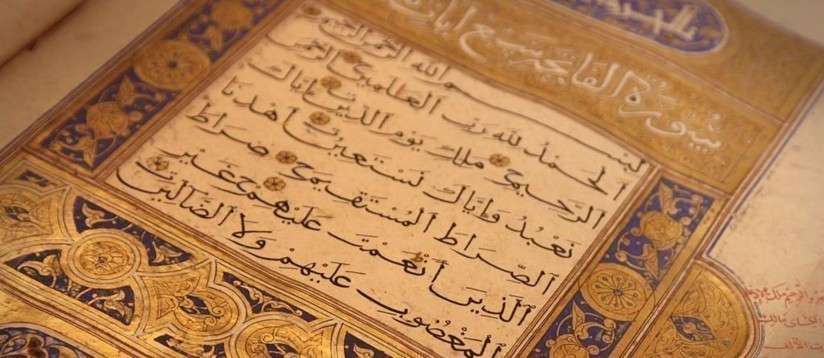 سورة الفاتحة سبع ايات
بسم الله الرحمن الرحيم
الحمد لله رب العلمين الرحمن
الرحيم ملك يوم الدين اياك
نعبد واياك نستعين اهدنا
الصراط المستقيم صراط
الذين أنعمت عليهم غير
المغضوب عليهم ولا الضالين